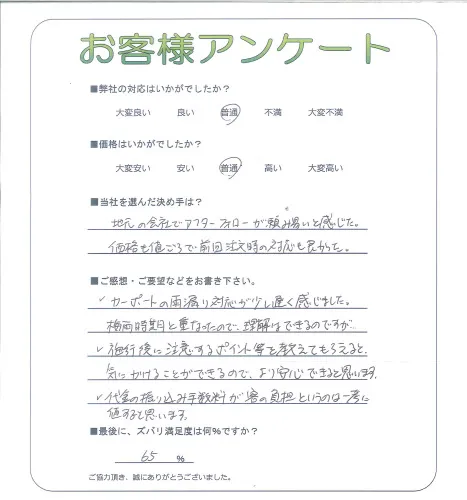 お客様アンケート
■弊社の対応はいかがでしたか？
大変良い 良い 普通 不満 大変不満
■価格はいかがでしたか？
大変安い 安い 普通 高い 大変高い
■当社を選んだ決め手は？
地元の会社でアフターフォローが頼み易いと感じた。
価格も値ごろで前回注文時の対応も良かった。
■ご感想・ご要望などをお書き下さい。
✓カーポートの雨漏り対応が少し遅く感じました。
梅雨時期と重なったので、理解はできるのですが…
✓施行後に注意するポイント等を教えてもらえると、
気にかけることができるので、より安心できると思います。
✓代金の振り込み手数料が客の負担というのは一考に
値すると思います。
■最後に、ズバリ満足度は何%ですか？
65 %
ご協力頂き、誠にありがとうございました。